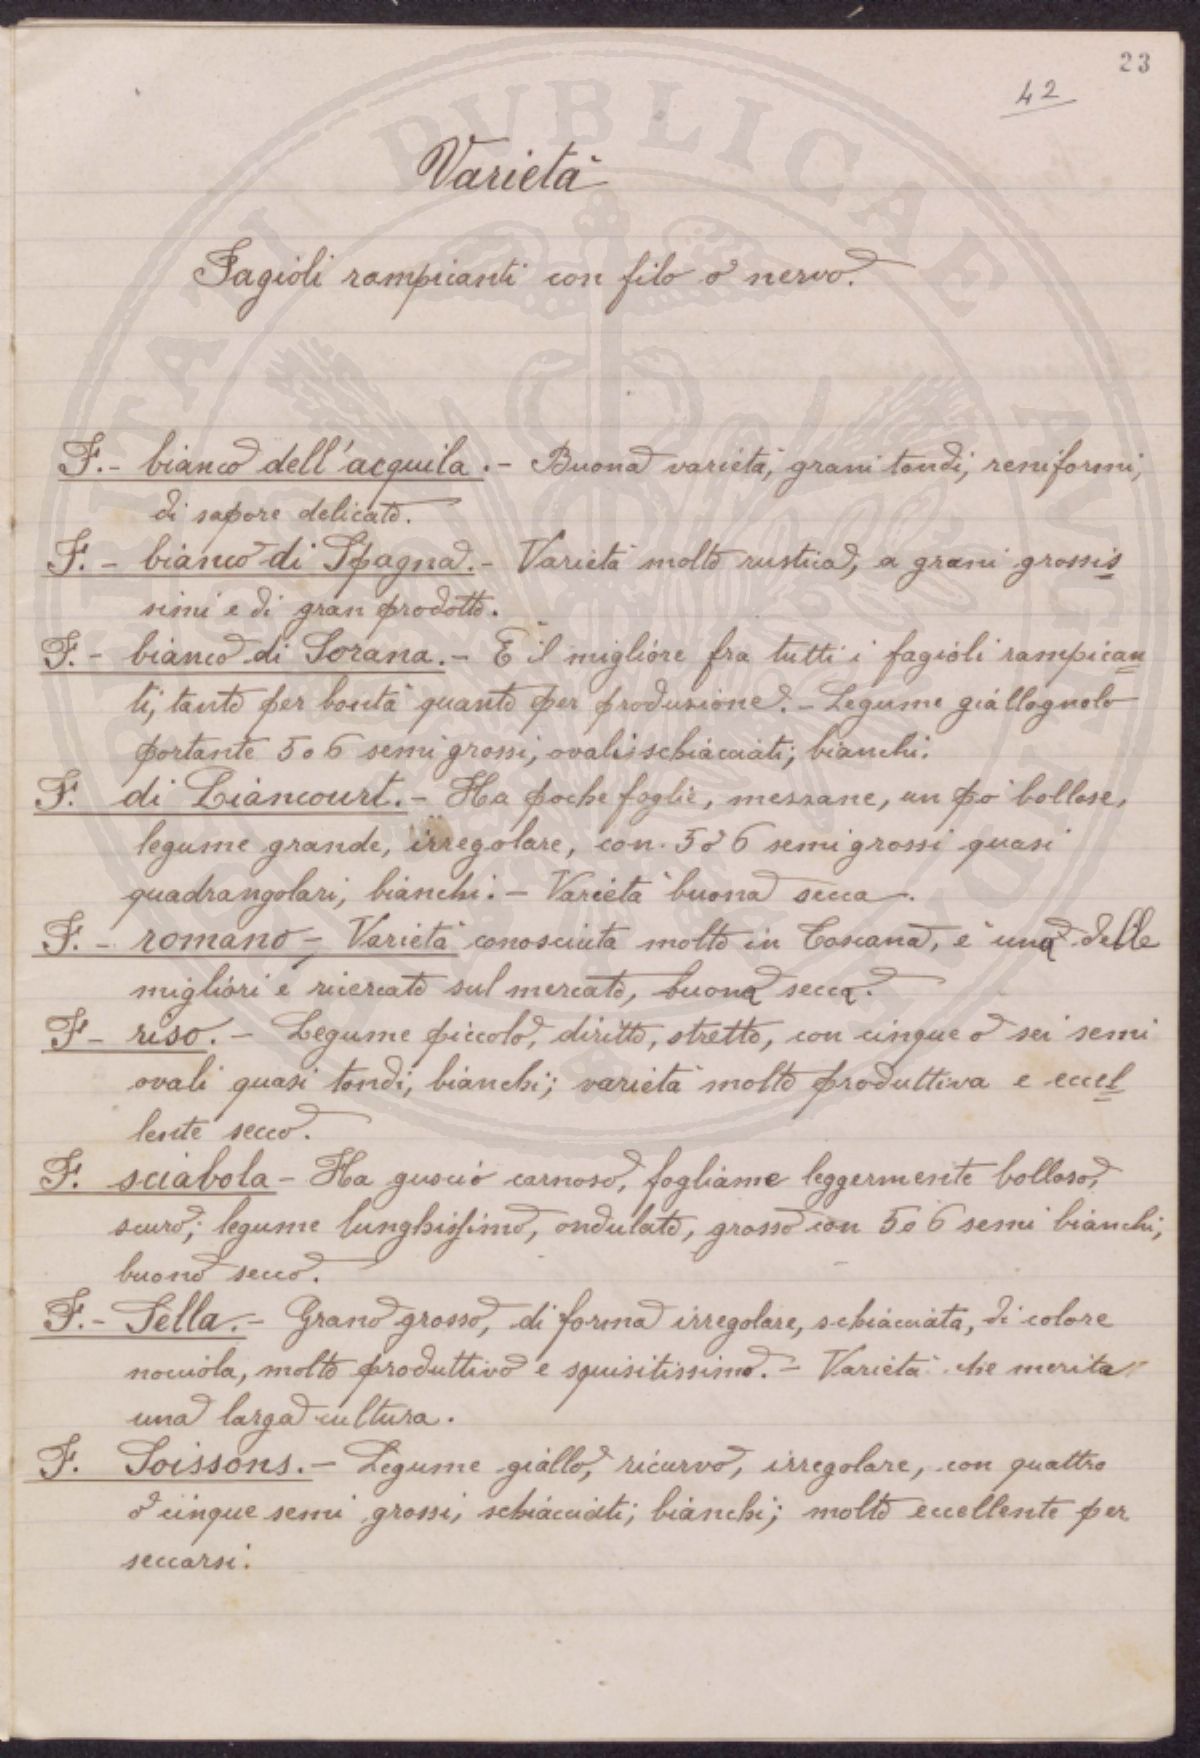 23
42
Varietà
Fagioli rampicanti con filo o nervo.
F. - bianco dell'acquila. - Buona varietà, grani tondi, reniformi,
di sapore delicato.
F. - bianco di Spagna. - Varietà molto rustica, a grani grossis
simi e di gran prodotto.
F. - bianco di Sorana. - È il migliore fra tutti i fagioli rampican
ti, tanto per bontà quanto per produzione. - Legume giallognolo
portante 5 o 6 semi grossi, ovali schiacciati, bianchi.
F. di Liancourt. - Ha poche foglie, mezzane, un pò bollose,
legume grande, irregolare, con 5 o 6 semi grossi quasi
quadrangolari, bianchi. - Varietà buona secca.
F. - romano - Varietà conosciuta molto in Toscana, è una delle
migliori e ricercato sul mercato, buona secca.
F - riso. - Legume piccolo, diritto, stretto, con cinque o sei semi
ovali quasi tondi, bianchi; varietà molto produttiva e eccel
lente secco.
F. sciabola - Ha guscio carnoso, fogliame leggermente bolloso,
scuro; legume lunghissimo, ondulato, grosso con 5 o 6 semi bianchi,
buono secco.
F. - Sella. - Grano grosso, di forma irregolare, schiacciata, di colore
nocciola, molto produttivo e squisitissimo. - Varietà che merita
una larga cultura.
F. Soissons. - Legume giallo, ricurvo, irregolare, con quattro
o cinque semi grossi, schiacciati, bianchi; molto eccellente per
seccarsi.